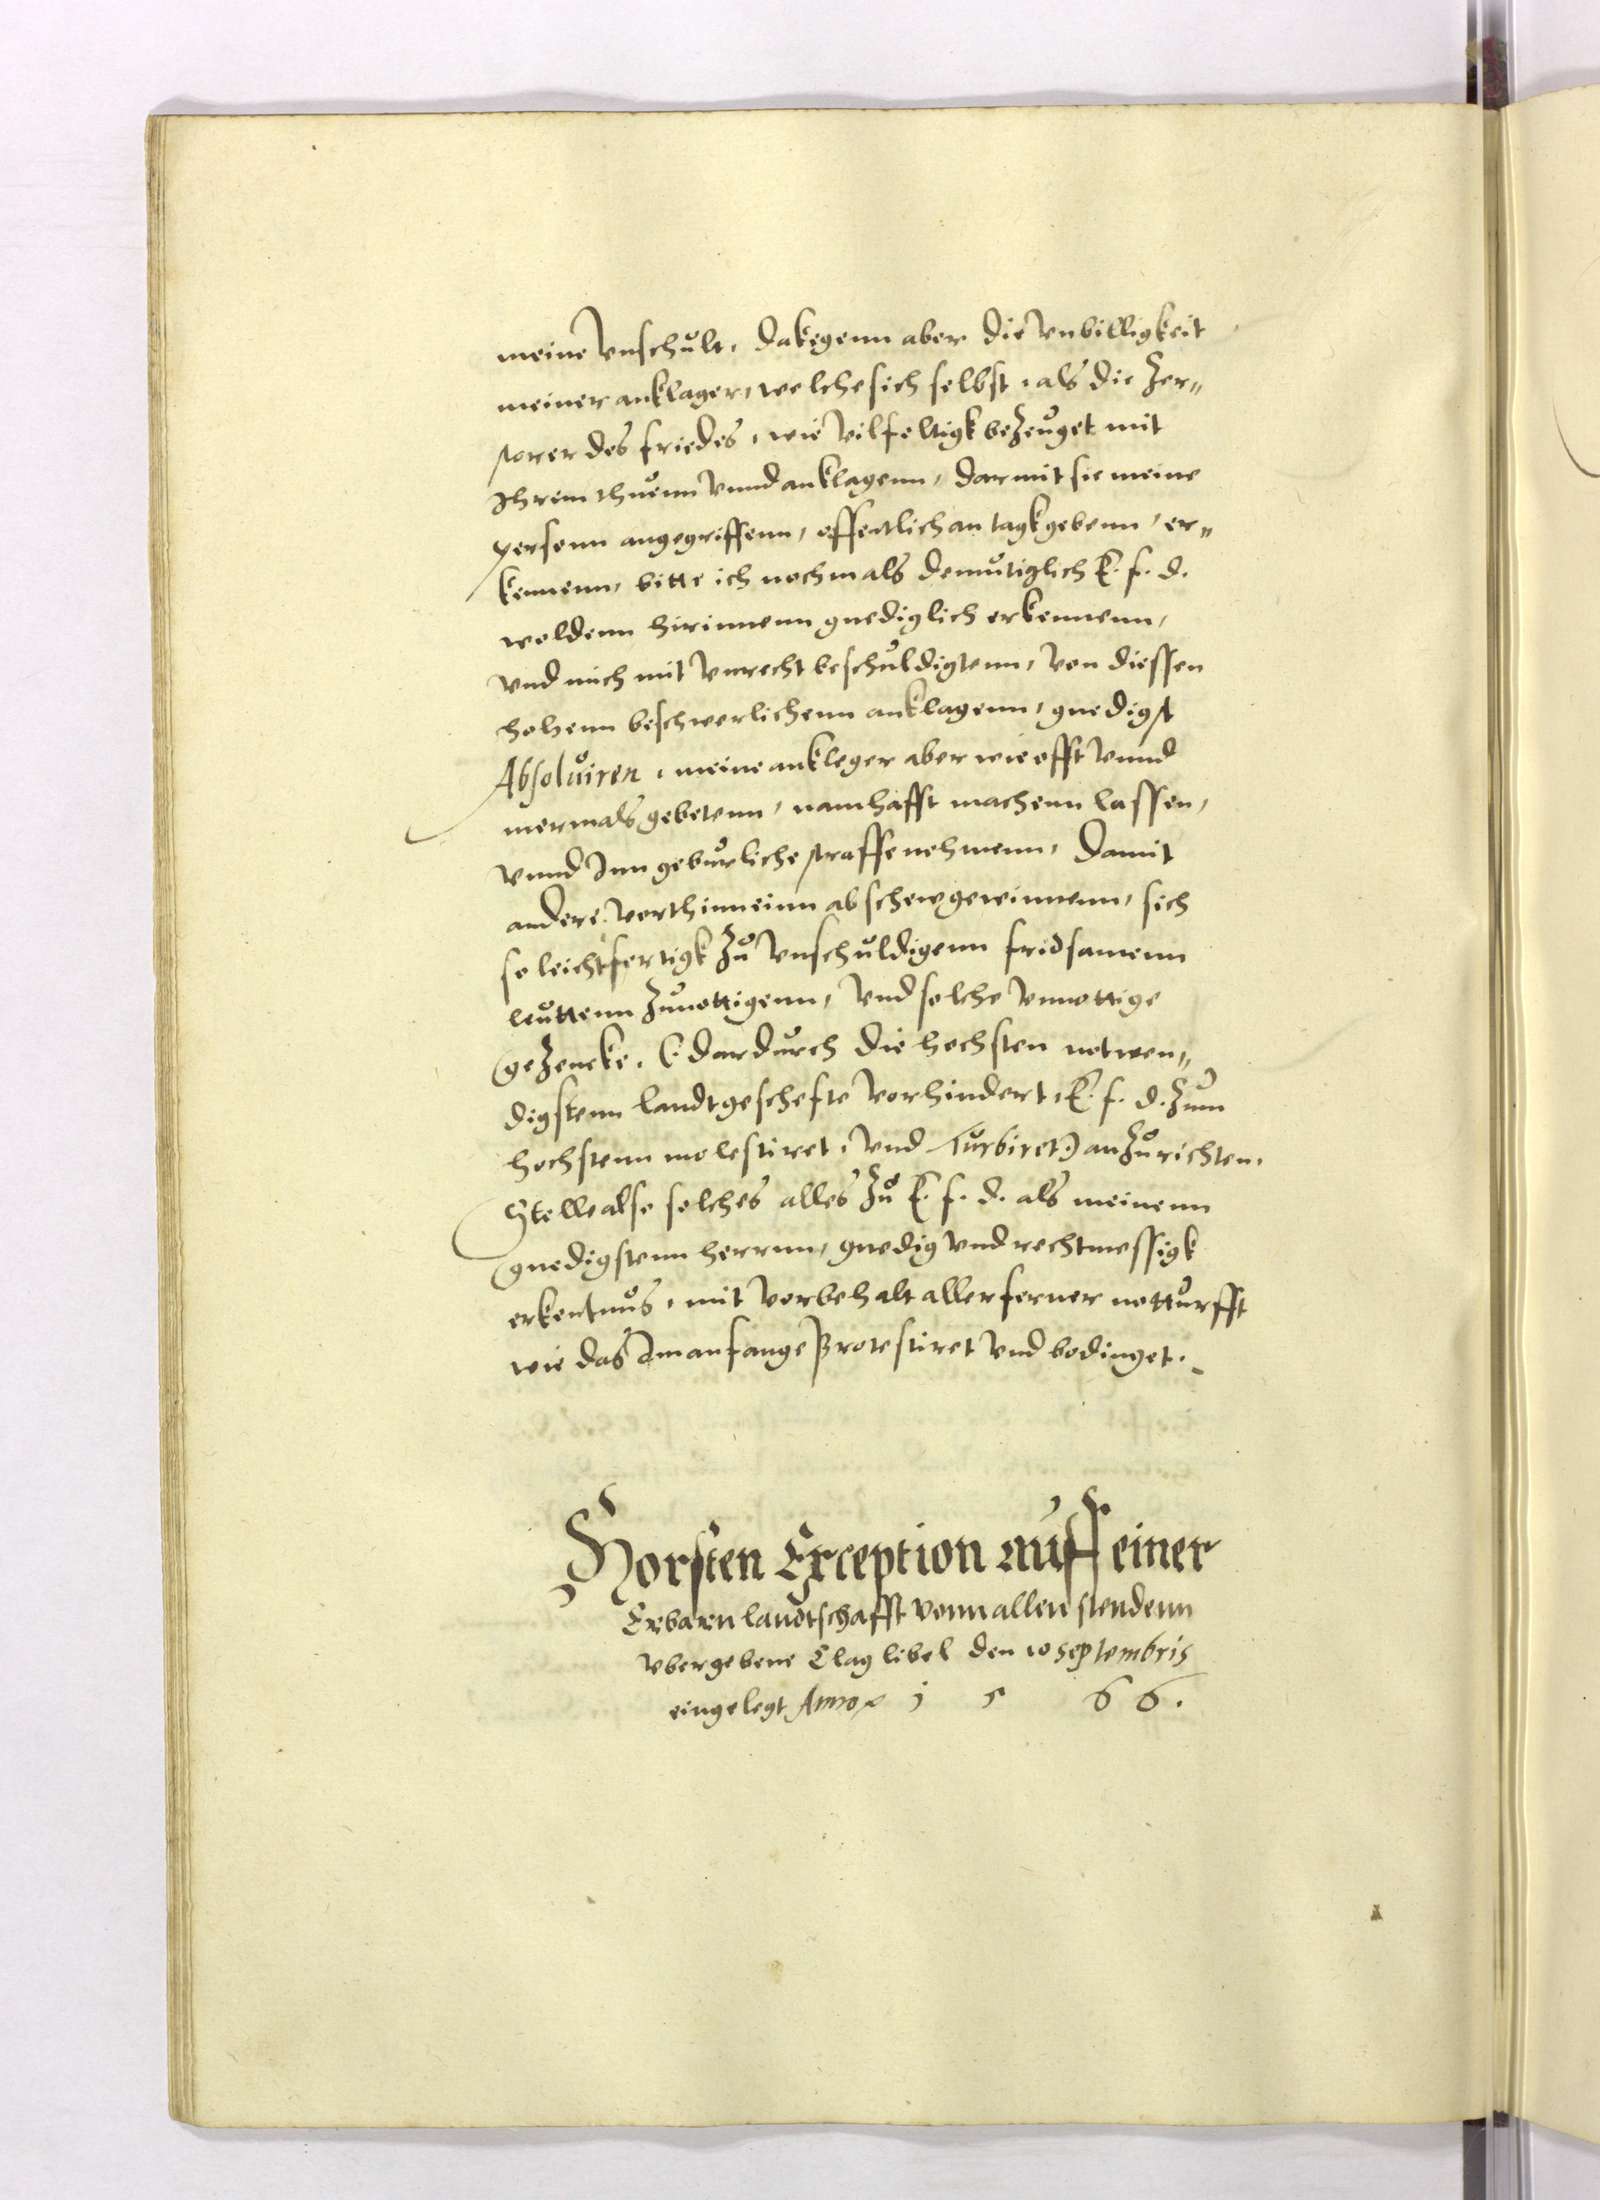 meine Vnschult, dakegenn aber die Vnbilligkeit
meiner anklager, welche sich selbst, als die Zer„
storer des friedes, wie Vilfeltigk beZeuget mit
Ihrem thuenn Vnnd anklagenn, darmit sie meine
personn angegriffenn, offentlich an tagk gebenn, er„
kennenn, bitte ich nochmals demutiglich E. f. d.
woldenn hirinnenn gnediglich erkennenn,
Vnd mich mit Vnrecht beschuldigtenn, Von diessen
hohenn beschwerlichenn anklagenn, gnedigst
Absoluiren, meine ankleger aber wie offt Vnnd
mermals gebetenn, namhafft machenn lassen,
Vnnd Inn geburliche straffe nehmenn, damit
andere Vorthinn einn abschew gewinnenn, sich
so leichtfertigk Zu Vnschuldigenn fridsamenn
leuttenn Zunottigenn, Vnd solche Vnnottige
geZencke, (: dardurch die hochsten notwen„
digstenn landtgeschefte Vorhindert, E. f. d. Zum
hochstenn molestiret, Vnd Turbiret:) anZurichten.
Stelle also solches alles Zu E. f. d. als meinenn
gnedigstenn herrnn, gnedig Vnd rechtmessigk
erkentnus, mit Vorbehalt aller ferner notturfft
wie das Am anfange Protestiret Vnd bedinget.
Horsten Exception auff einer
Erbarn landtschafft vonn allen stendenn
vbergebene Clag libel den 10 septembris
eingelegt Anno 1 5 6 6.